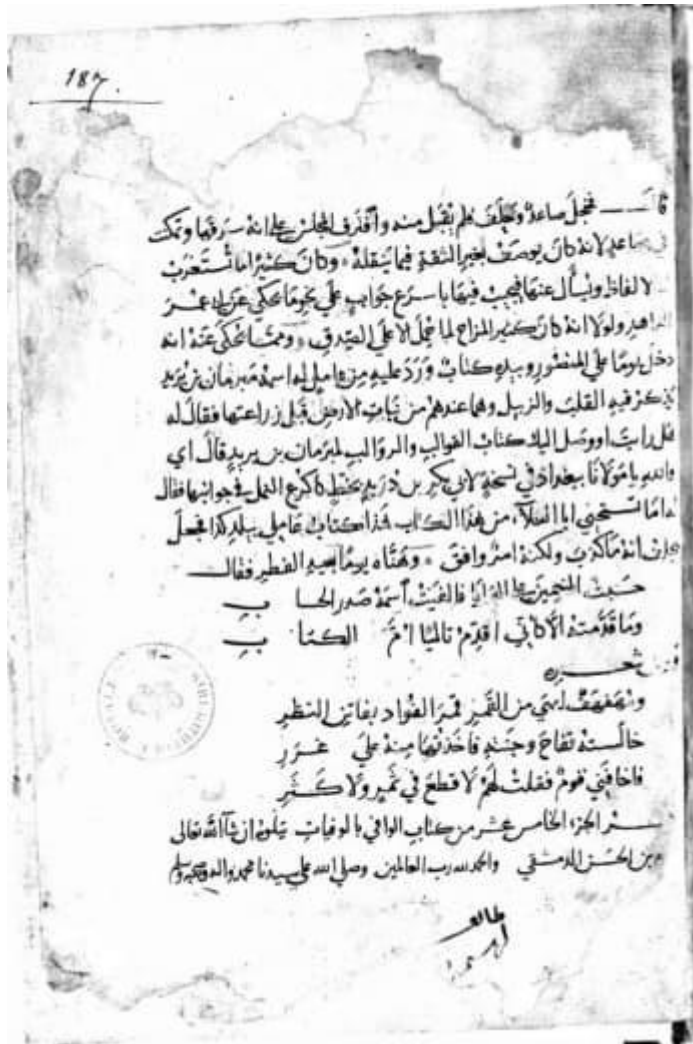 187.
فخجل صاعد وحلف فلم يقبل منه وافترق المجلس على انه سرقها وتمكن
صاعد لانه كان يوصف بغير الثقة فيما ينقله وكان كثيرا ما تستغرب
الالفاظ ويسأل عنها فيجيب فيها باسرع جواب على نحو ما يحكى عن ابي عمر
الزاهد ولولا انه كان كثير المزاح لما حمل الا على الصدق ومما يحكى عنه انه
دخل يوما على المنصور وبيده كتاب ورد عليه من عامل له اسمه مبرمان بن يزيد
يذكر فيه القلب والزبل وهما عندهم من نبات الارض قبل زراعتها فقال له
هل رايت او وصل اليك كتاب القوالب والزوالب لمبرمان بن يزيد قال اي
والله يا مولانا ببغداد في نسخة لابي بكر بن دريد بخط كاكرع النمل في جوانبها فقال
له اما تستحيي ابا العلاء من هذا الكتاب هذا كتاب عامل ببلد كذا فجعل
يحلف انه ما كذب ولكنه امر وافق وهناه يوما بعيد الفطر فقال
حسبت المنعمين على البرايا فالفيت اسمه صدر الحساب
وما قدمته الا كاني اقدم تاليا ام الكتاب
شعره
ومهفهف ابهى من القمر قمر الفواد بفاتن النظر
خالسته تفاح وجنته فاخذتها منه على غرر
فاخافني قوم فقلت لهم لا قطع في ثمر ولا كثر
الجزء الخامس عشر من كتاب الوافي بالوفيات يتلوه ان شاء الله تعالى
بن الحسن الدمشقي والحمد لله رب العالمين وصلى الله على سيدنا محمد واله وصحبه وسلم